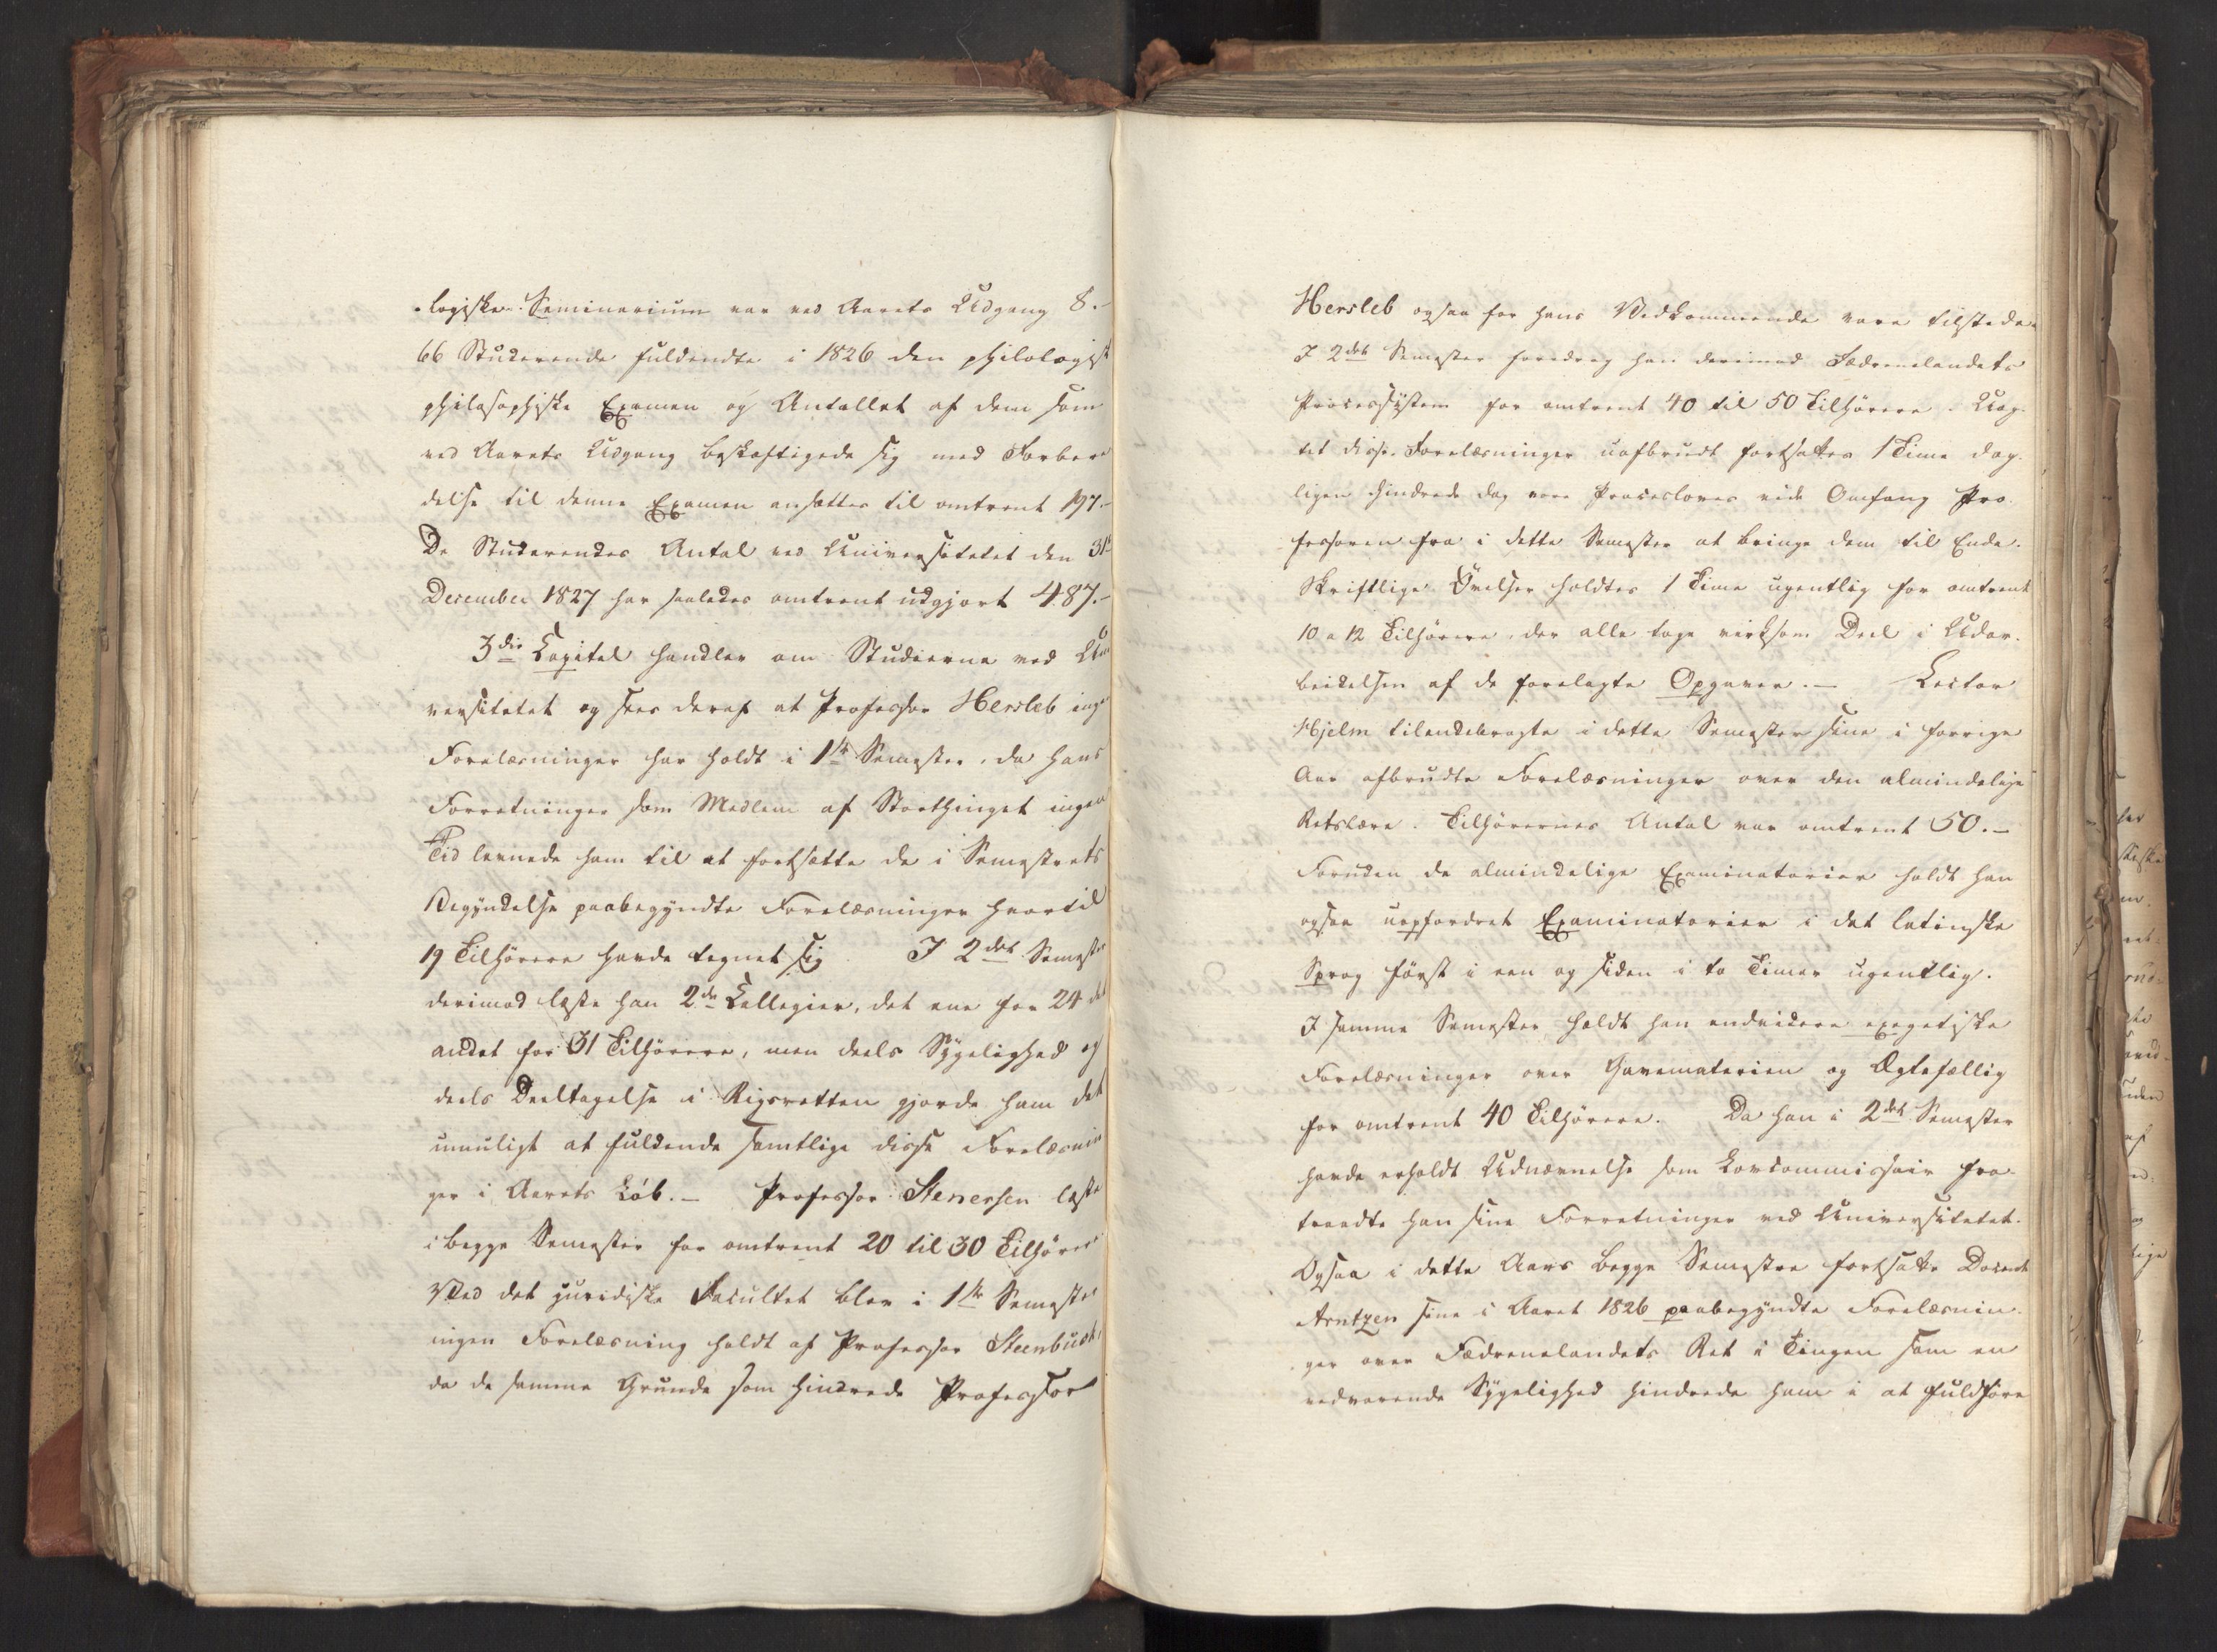 -logiske Seminarium var ved Aarets Udgang 8.-
66 Studerende fuldendte i 1826 den philologisk
philosophiske Examen og Antallet af dem som
ved Aarets Udgang beskæftigede sig med Forbere
delse til denne Examen ansættes til omtrent 197.-
De Studerendes Antal ved Universitetet den 31te
December 1827 har saaledes omtrent udgjort 487.-
3die Capitel handler om Studierne ved Uni
versitetet og sees deraf at Professor Hersleb ingen
Forelæsninger har holdt i 1ste Semester, da hans
Forretninger som Medlem af Storthinget ingen
Tid levnede ham til at fortsætte de i Semestrets
Begyndelse paabegyndte Forelæsninger hvortil
19 Tilhörere havde tegnet sig. I 2det Semester
derimod læste han 2de Collegier, det ene for 24 det
andet for 31 Tilhörere, men deels Sygelighed og
deels Deeltagelse i Rigsretten gjorde ham det
umuligt at fuldende samtlige disse Forelæsnin
ger i Aarets Løb.- Professor Stenersen læste
i begge Semester for omtrent 20 til 30 Tilhörere
Ved det juridiske Facultet blev i 1ste Semester
ingen Forelæsning holdt af Professor Steenbuch,
da de samme Grunde som hindrede Professor
Hersleb ogsaa for hans Vedkommende vare tilstede.
I 2det Semester foredrog han derimod Fædrenelandets
Processystem for omtrent 40 til 50 Tilhörere. Uag-
tet disse Forelæsninger uafbrudt fortsattes 1 Time dag-
ligen hindrede dog vore Procesloves vide Omfang Pro-
fessoren fra i dette Semester at bringe dem til Ende.
Skriftlige Övelser holdtes 1 Time ugentlig for omtrent
10 a 12 Tilhörere, der alle toge virksom Deel i Udar-
beidelsen af de forelagte Opgaver.- Lector
Hjelm tilendebragte i dette Semester sine i forrige
Aar afbrudte Forelæsninger over den almindelige
Retslære. Tilhörernes Antal var omtrent 50.-
Foruden de almindelige Examinatorier holdt han
ogsaa uopfordret Examinatorier i det latinske
Sprog först i een og siden i to Timer ugentlig.
I samme Semester holdt han endvidere exegetiske
Forelæsninger over Gavematerien og Ægtefællig
for omtrent 40 Tilhörere. Da han i 2det Semester
havde erholdt Udnævnelse som Lovcommissair fra-
traadte han sine Forretninger ved Universitetet.
Ogsaa i dette Aars begge Semestre fortsatte Docent
Arntzen sine i Aaret 1826 paabegyndte Forelæsnin-
ger over Fædrenelandets Ret i Tingen som en
vedvarende Sygelighed hindrede ham i at fuldföre